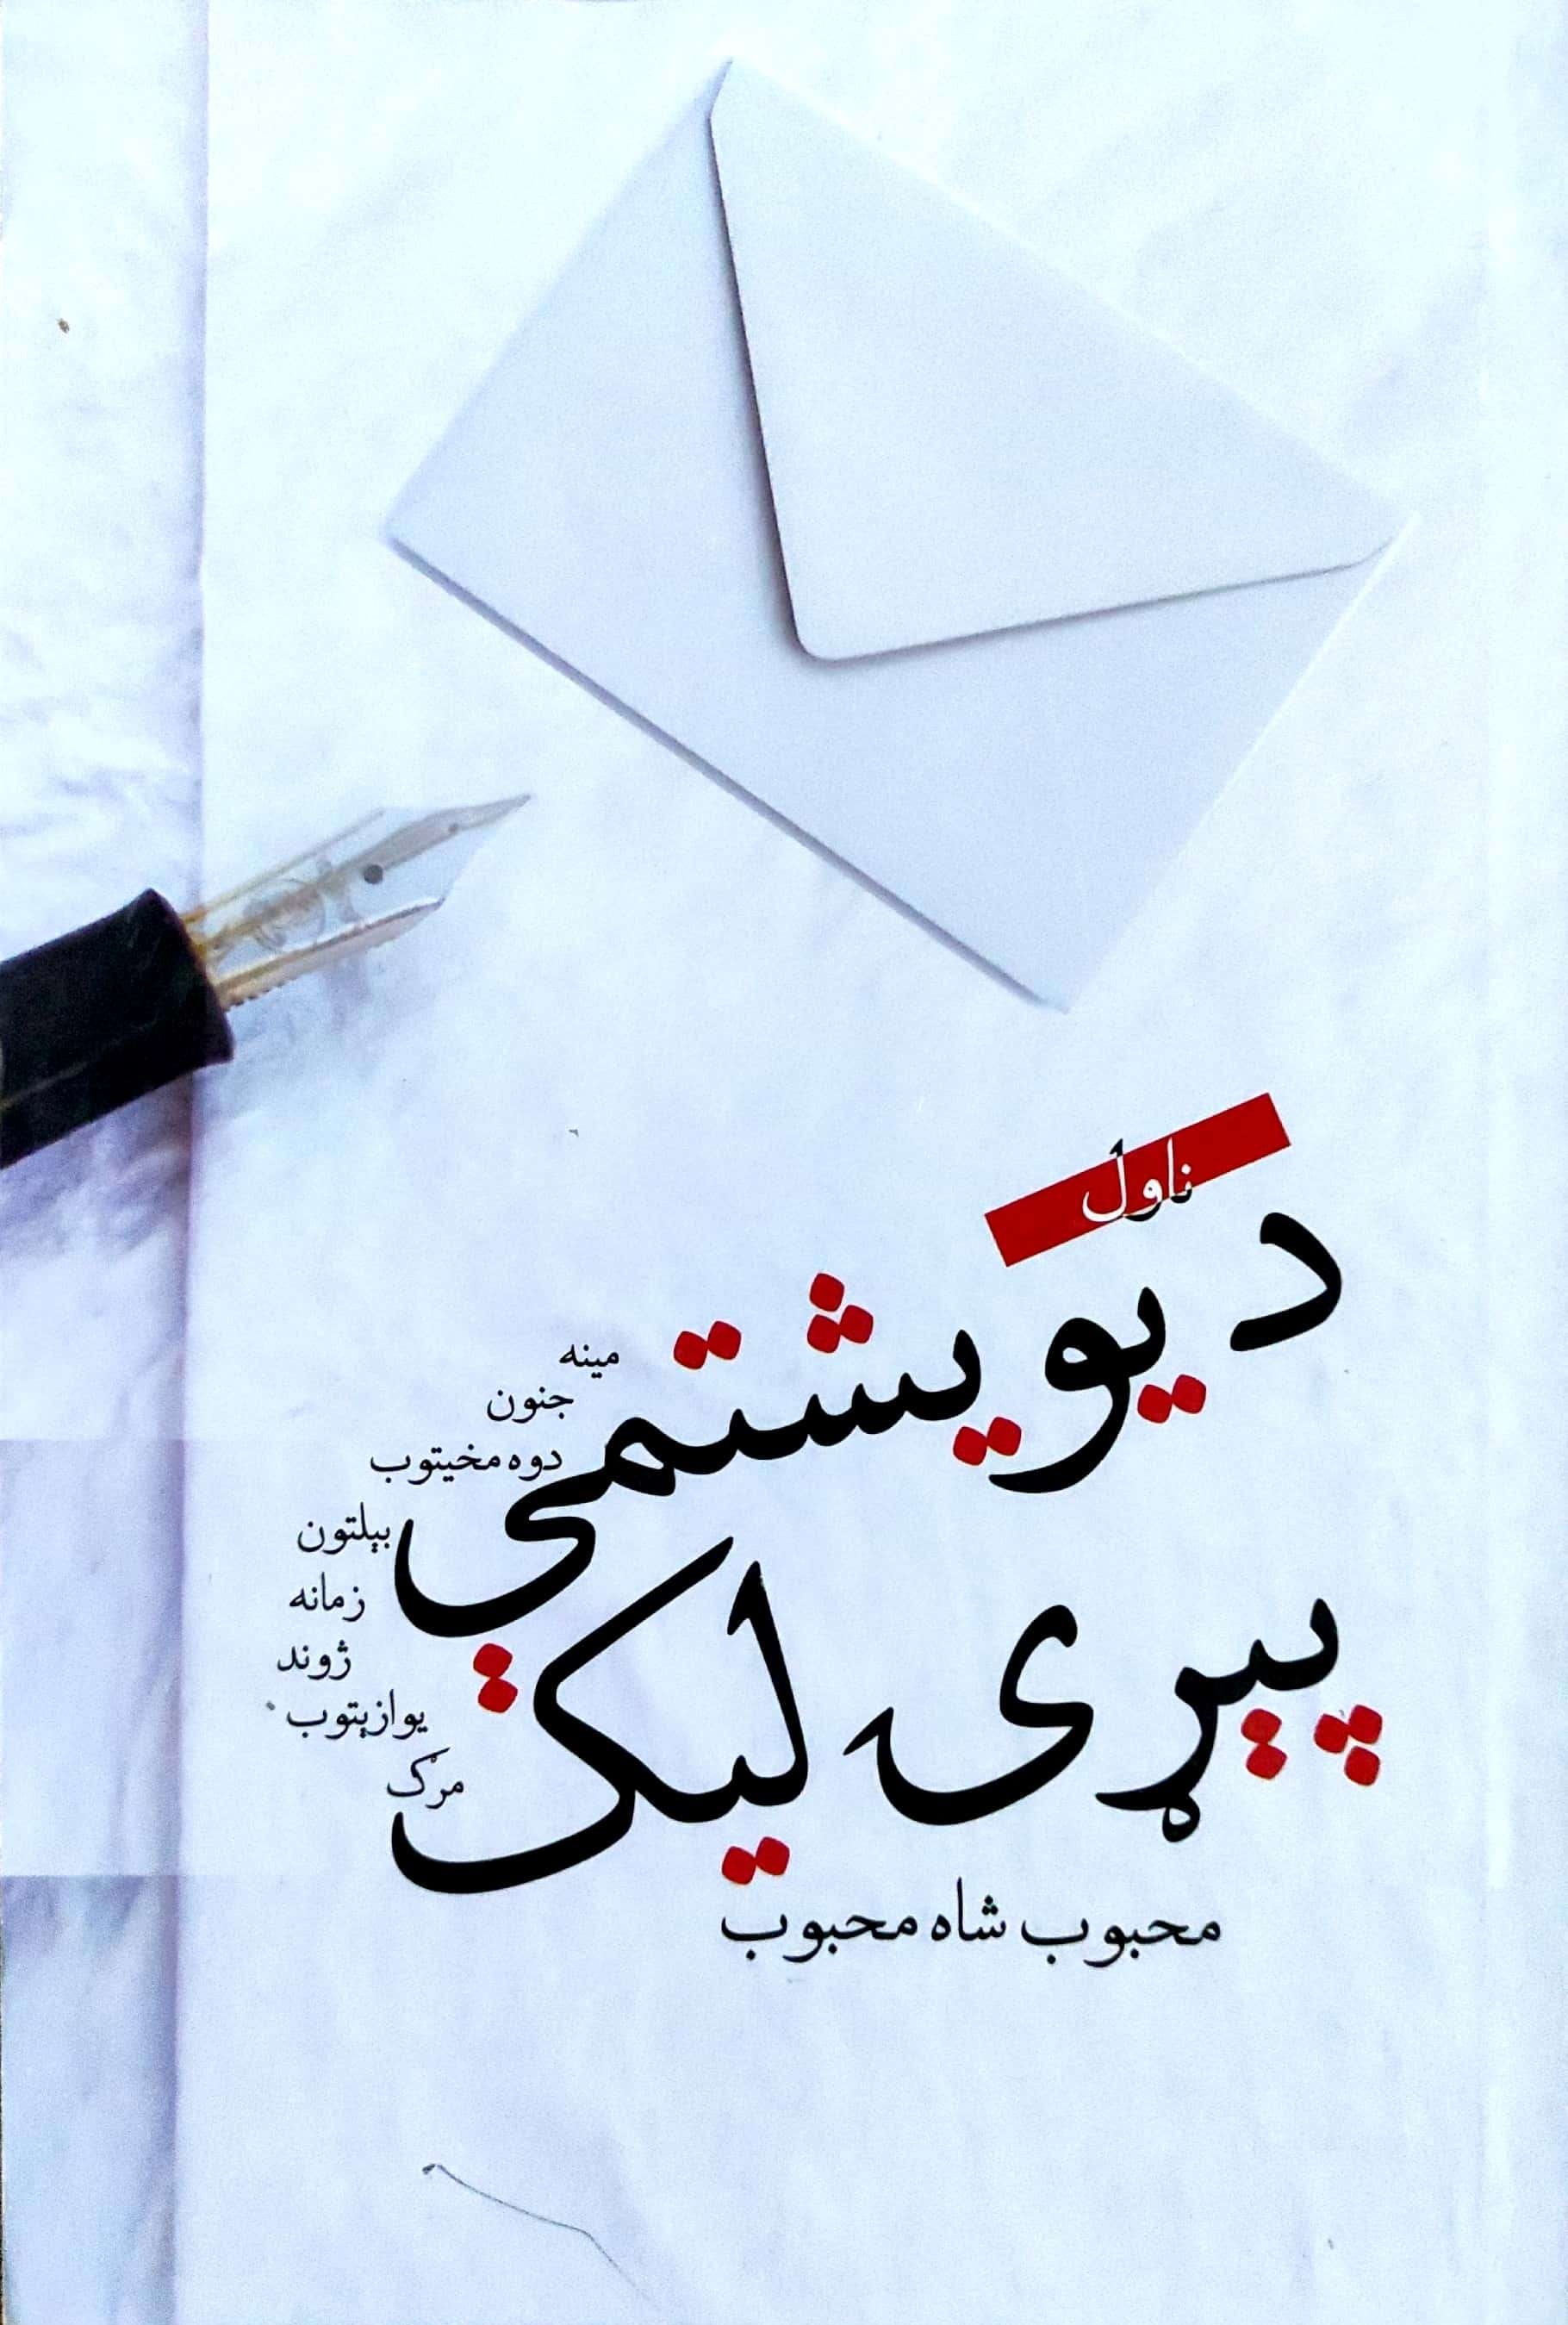 ناول
د یویشتمې
پیړۍ لیک
مینه
جنون
دوه مخیتوب
بېلتون
زمانه
ژوند
یوازېتوب
مرګ
محبوب شاه محبوب